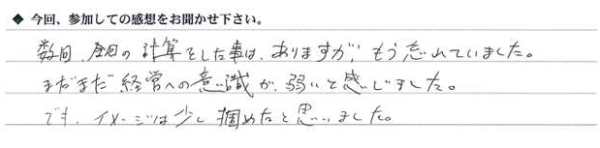 ◆ 今回、参加しての感想をお聞かせ下さい。
数回、の計算をした事は、ありますが、もう忘れていました。
まだまだ経営への意識が、弱いと感じました。
でも、イメージは少し掴めたと思いました。